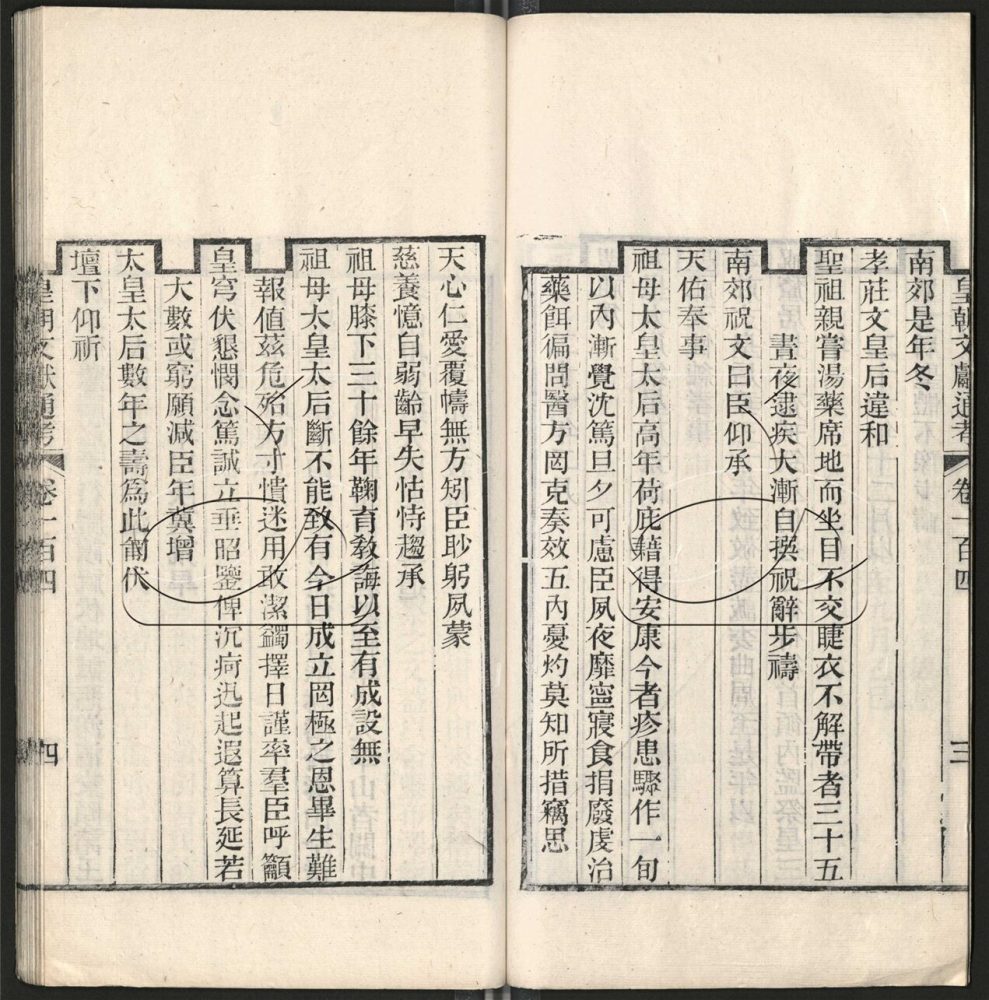 皇朝文獻通考 卷一百四 三
南郊是年冬
孝莊文皇后違和
聖祖親嘗湯藥席地而坐目不交睫衣不解帶者三十五
晝夜逮疾大漸自撰祝辭步禱
南郊祝文曰臣仰承
天佑奉事
祖母太皇太后高年荷庇藉得安康今者疹患驟作一旬
以內漸覺沈篤旦夕可慮臣夙夜靡寍寢食捐廢虔治
藥餌徧問醫方罔克奏效五內憂灼莫知所措竊思
天心仁愛覆幬無方矧臣眇躬夙蒙
慈養憶自弱齡早失怙恃趨承
祖母膝下三十餘年鞠育教誨以至有成設無
祖母太皇太后斷不能致有今日成立罔極之恩畢生難
報值茲危殆方寸憒迷用敢潔蠲擇日謹率羣臣呼籲
皇穹伏懇憫念篤誠立垂昭鑒俾沉痾迅起遐算長延若
大數或窮願減臣年冀增
太皇太后數年之壽爲此匍伏
壇下仰祈
皇朝文獻通考 卷一百四 四